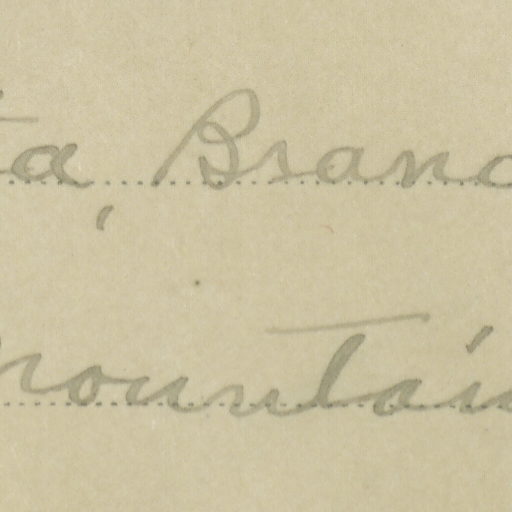 ta, Branc
Mountain